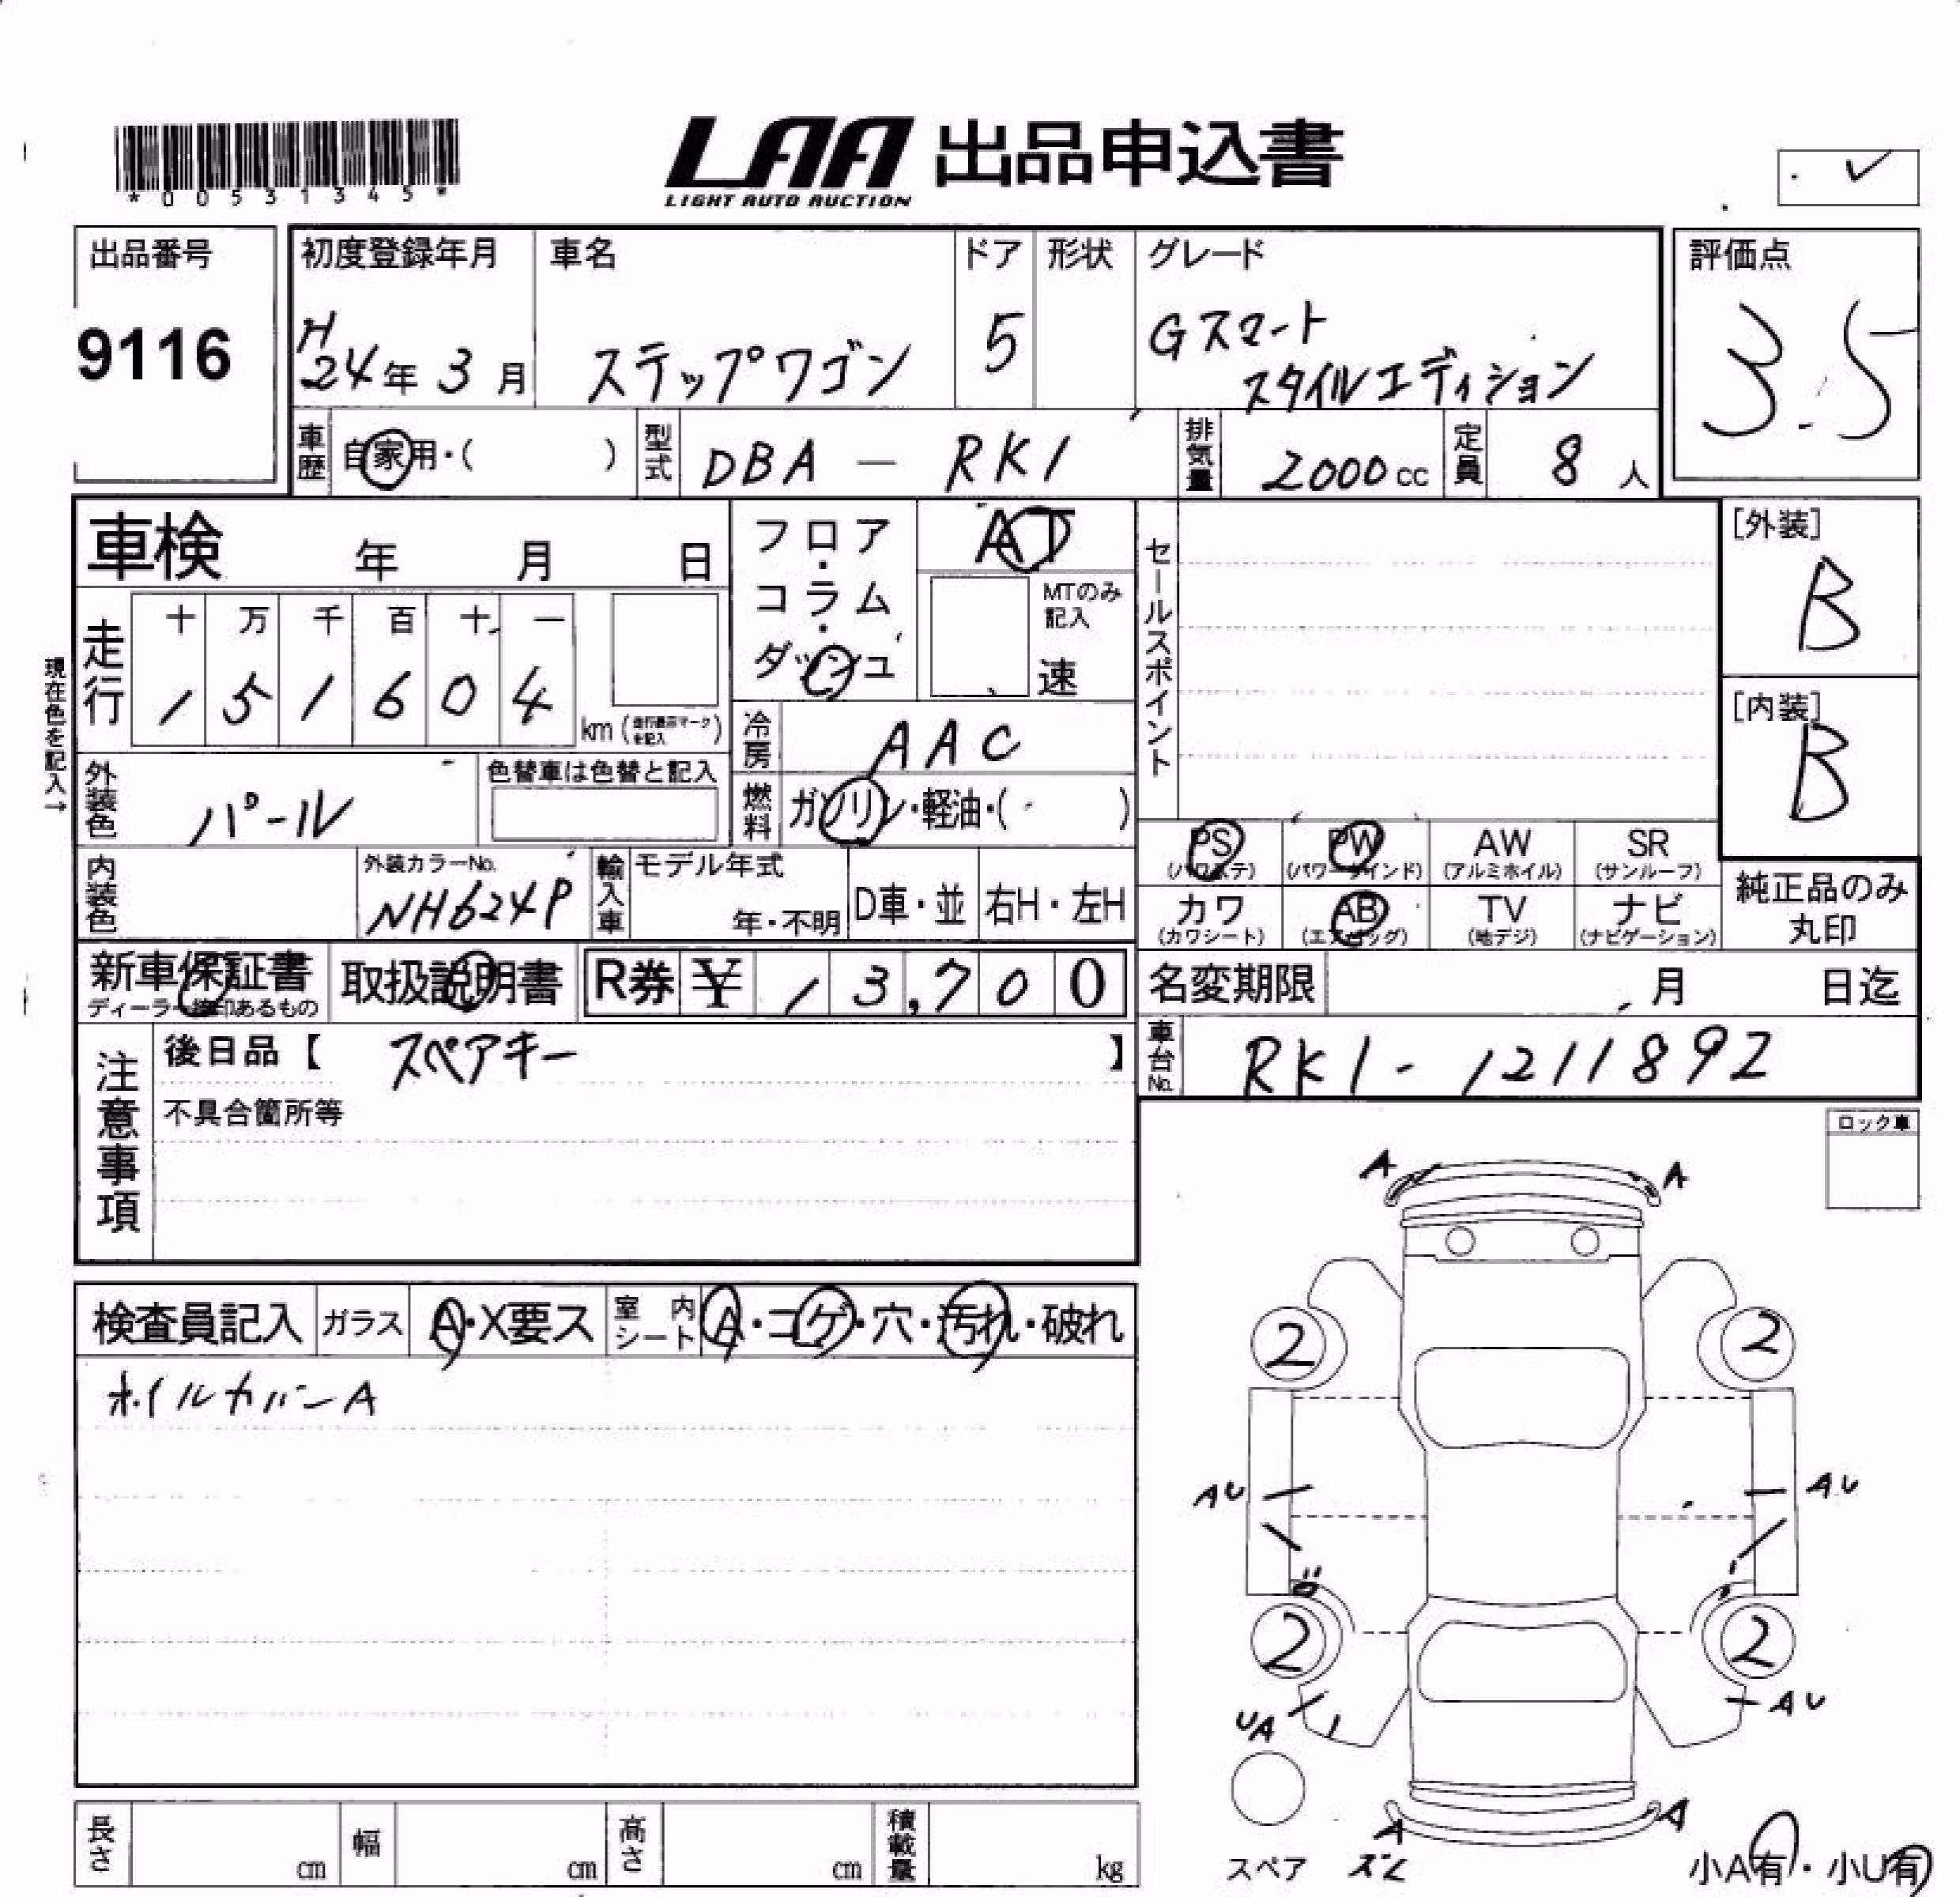 *00531345*
LAA 出品申込書
LIGHT AUTO AUCTION
出品番号
9116
初度登録年月
H24年3月
車名
ステップワゴン
ドア
5
形状
グレード
Gスマート
スタイルエディション
評価点
3.5
車歴 自家用・( )
型式 DBA - RK1
排気量 2000cc
定員 8人
車検 年 月 日
走行 十 万 千 百 十 一
1 5 1 6 0 4
km (走行表示マークを記入)
現在色を記入→
外装色 パール
色替車は色替と記入
内装色
外装カラーNo.
NH624P
フロア・コラム・ダッシュ
AT
MTのみ記入
速
冷房 AAC
燃料 ガソリン・軽油・( )
輸入車 モデル年式
年・不明
D車・並
右H・左H
セールスポイント
[外装]
B
[内装]
B
PS (パワステ)
PW (パワーウインド)
AW (アルミホイル)
SR (サンルーフ)
カワ (カワシート)
AB (エアバッグ)
TV (地デジ)
ナビ (ナビゲーション)
純正品のみ
丸印
新車保証書
ディーラー捺印あるもの
取扱説明書
R券 ¥ 13,700
名変期限 月 日迄
車台No. RK1-1211892
注意事項
後日品【 スペアキー 】
不具合箇所等
ロック車
検査員記入
ガラス A・X要ス
室内シート A・コゲ・穴・汚れ・破れ
ホイルカバーA
A A
2 2
AU AU
2 2
UA AU
A A
スペア ズレ
小A有・小U有
長さ cm
幅 cm
高さ cm
積載量 kg